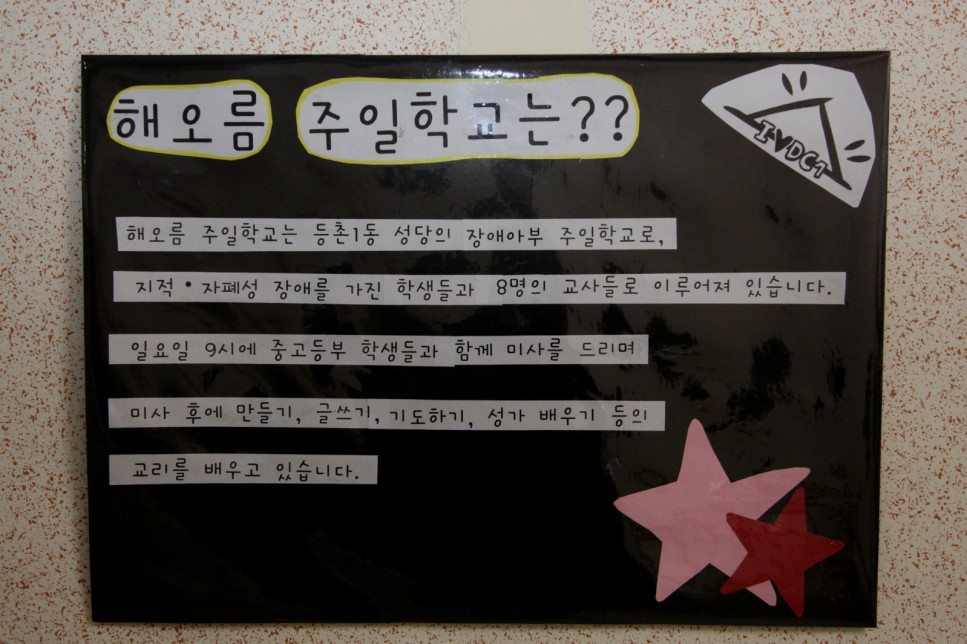 해오름 주일학교는??
I-VDC1
해오름 주일학교는 등촌1동 성당의 장애아부 주일학교로,
지적·자폐성 장애를 가진 학생들과 8명의 교사들로 이루어져 있습니다.
일요일 9시에 중고등부 학생들과 함께 미사를 드리며
미사 후에 만들기, 글쓰기, 기도하기, 성가 배우기 등의
교리를 배우고 있습니다.